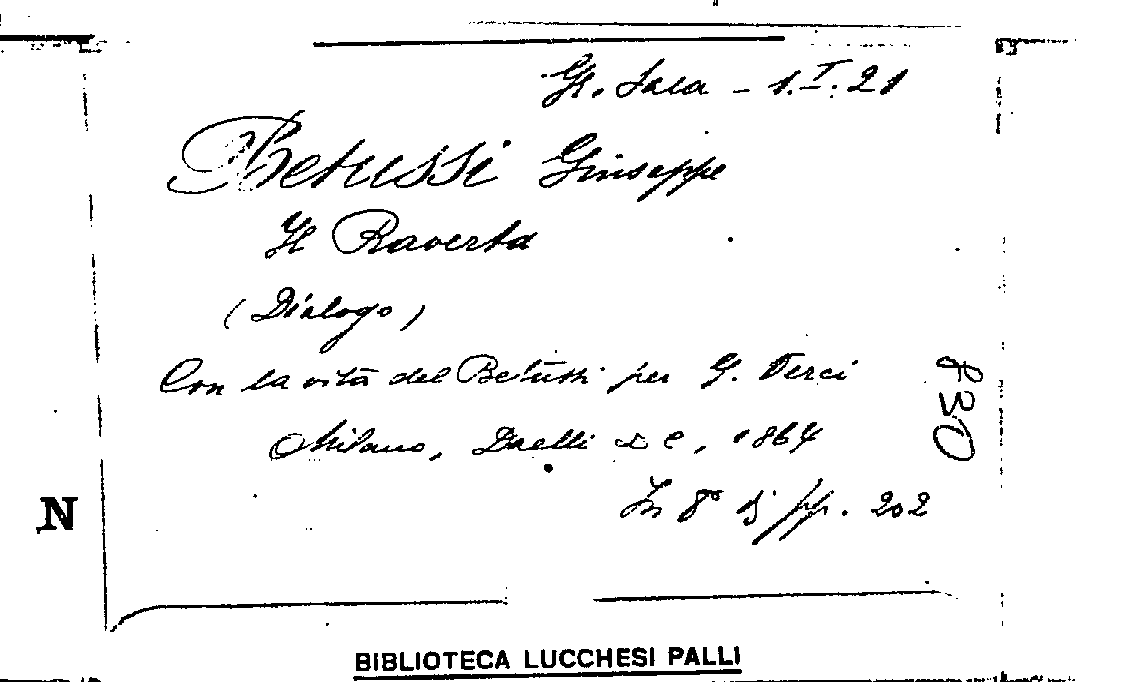 Gr. Sala - 1.I.21
Betussi Giuseppe
Il Raverta
(Dialogo)
Con la vita del Betussi per G. Verci
Milano, Daelli e C, 1864
In 8° di pp. 202
830
N
BIBLIOTECA LUCCHESI PALLI